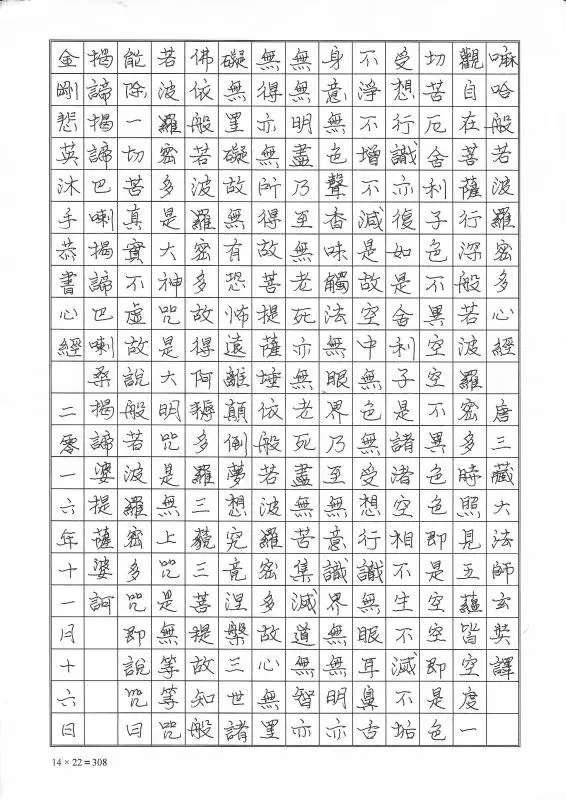 嘛哈般若波羅密多心經 唐三藏大法師玄奘譯
觀自在菩薩行深般若波羅密多時照見五蘊皆空度一
切苦厄舍利子色不異空空不異色色即是空空即是色
受想行識亦復如是舍利子是諸渚空相不生不滅不垢
不淨不增不減是故空中無色無受想行識無眼耳鼻舌
身意無色聲香味觸法無眼界乃至無意識界無無明亦
無無明盡乃至無老死亦無老死盡無苦集滅道無智亦
無得亦無所得故菩提薩埵依般若波羅密多故心無罣
礙無罣礙故無有恐怖遠離顛倒夢想究竟涅槃三世諸
佛依般若波羅密多故得阿耨多羅三藐三菩提故知般
若波羅密多是大神咒是大明咒是無上咒是無等等咒
能除一切苦真實不虛故說般若波羅密多咒即說咒曰
揭諦揭諦巴喇揭諦巴喇桑揭諦婆提薩婆訶
金剛悲英沐手恭書心經 二零一六年十一月十六日
14 × 22 = 308